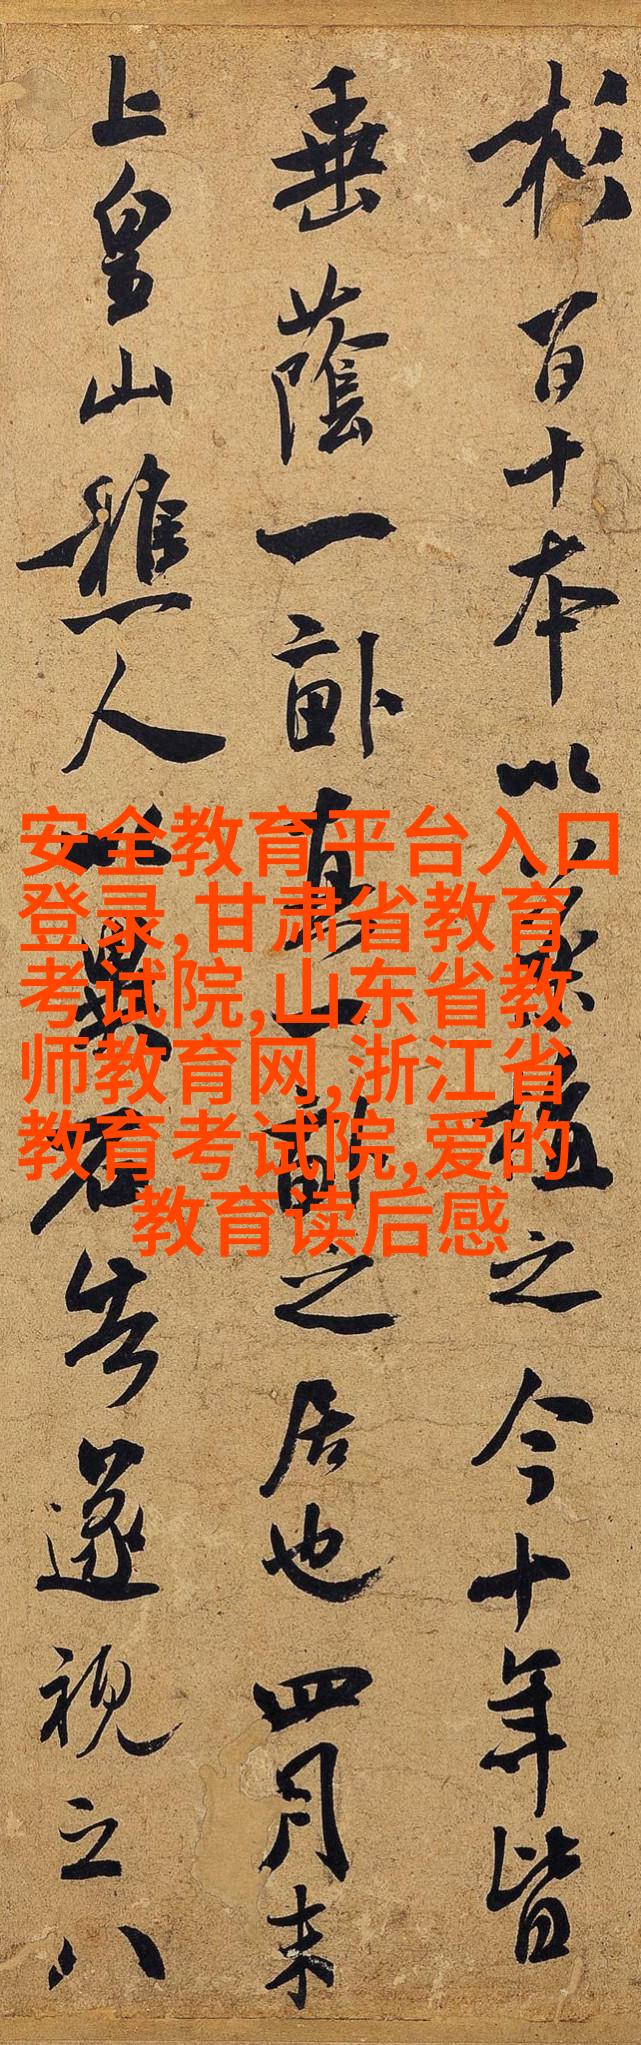 杉百十本以植之今十年皆
垂蔭一畝真一畝之居也四月末
上皇山樵人以異石告遂視之八
安全教育平台入口
登录,甘肃省教育
考试院,山东省教
师教育网,浙江省
教育考试院,爱的
教育读后感